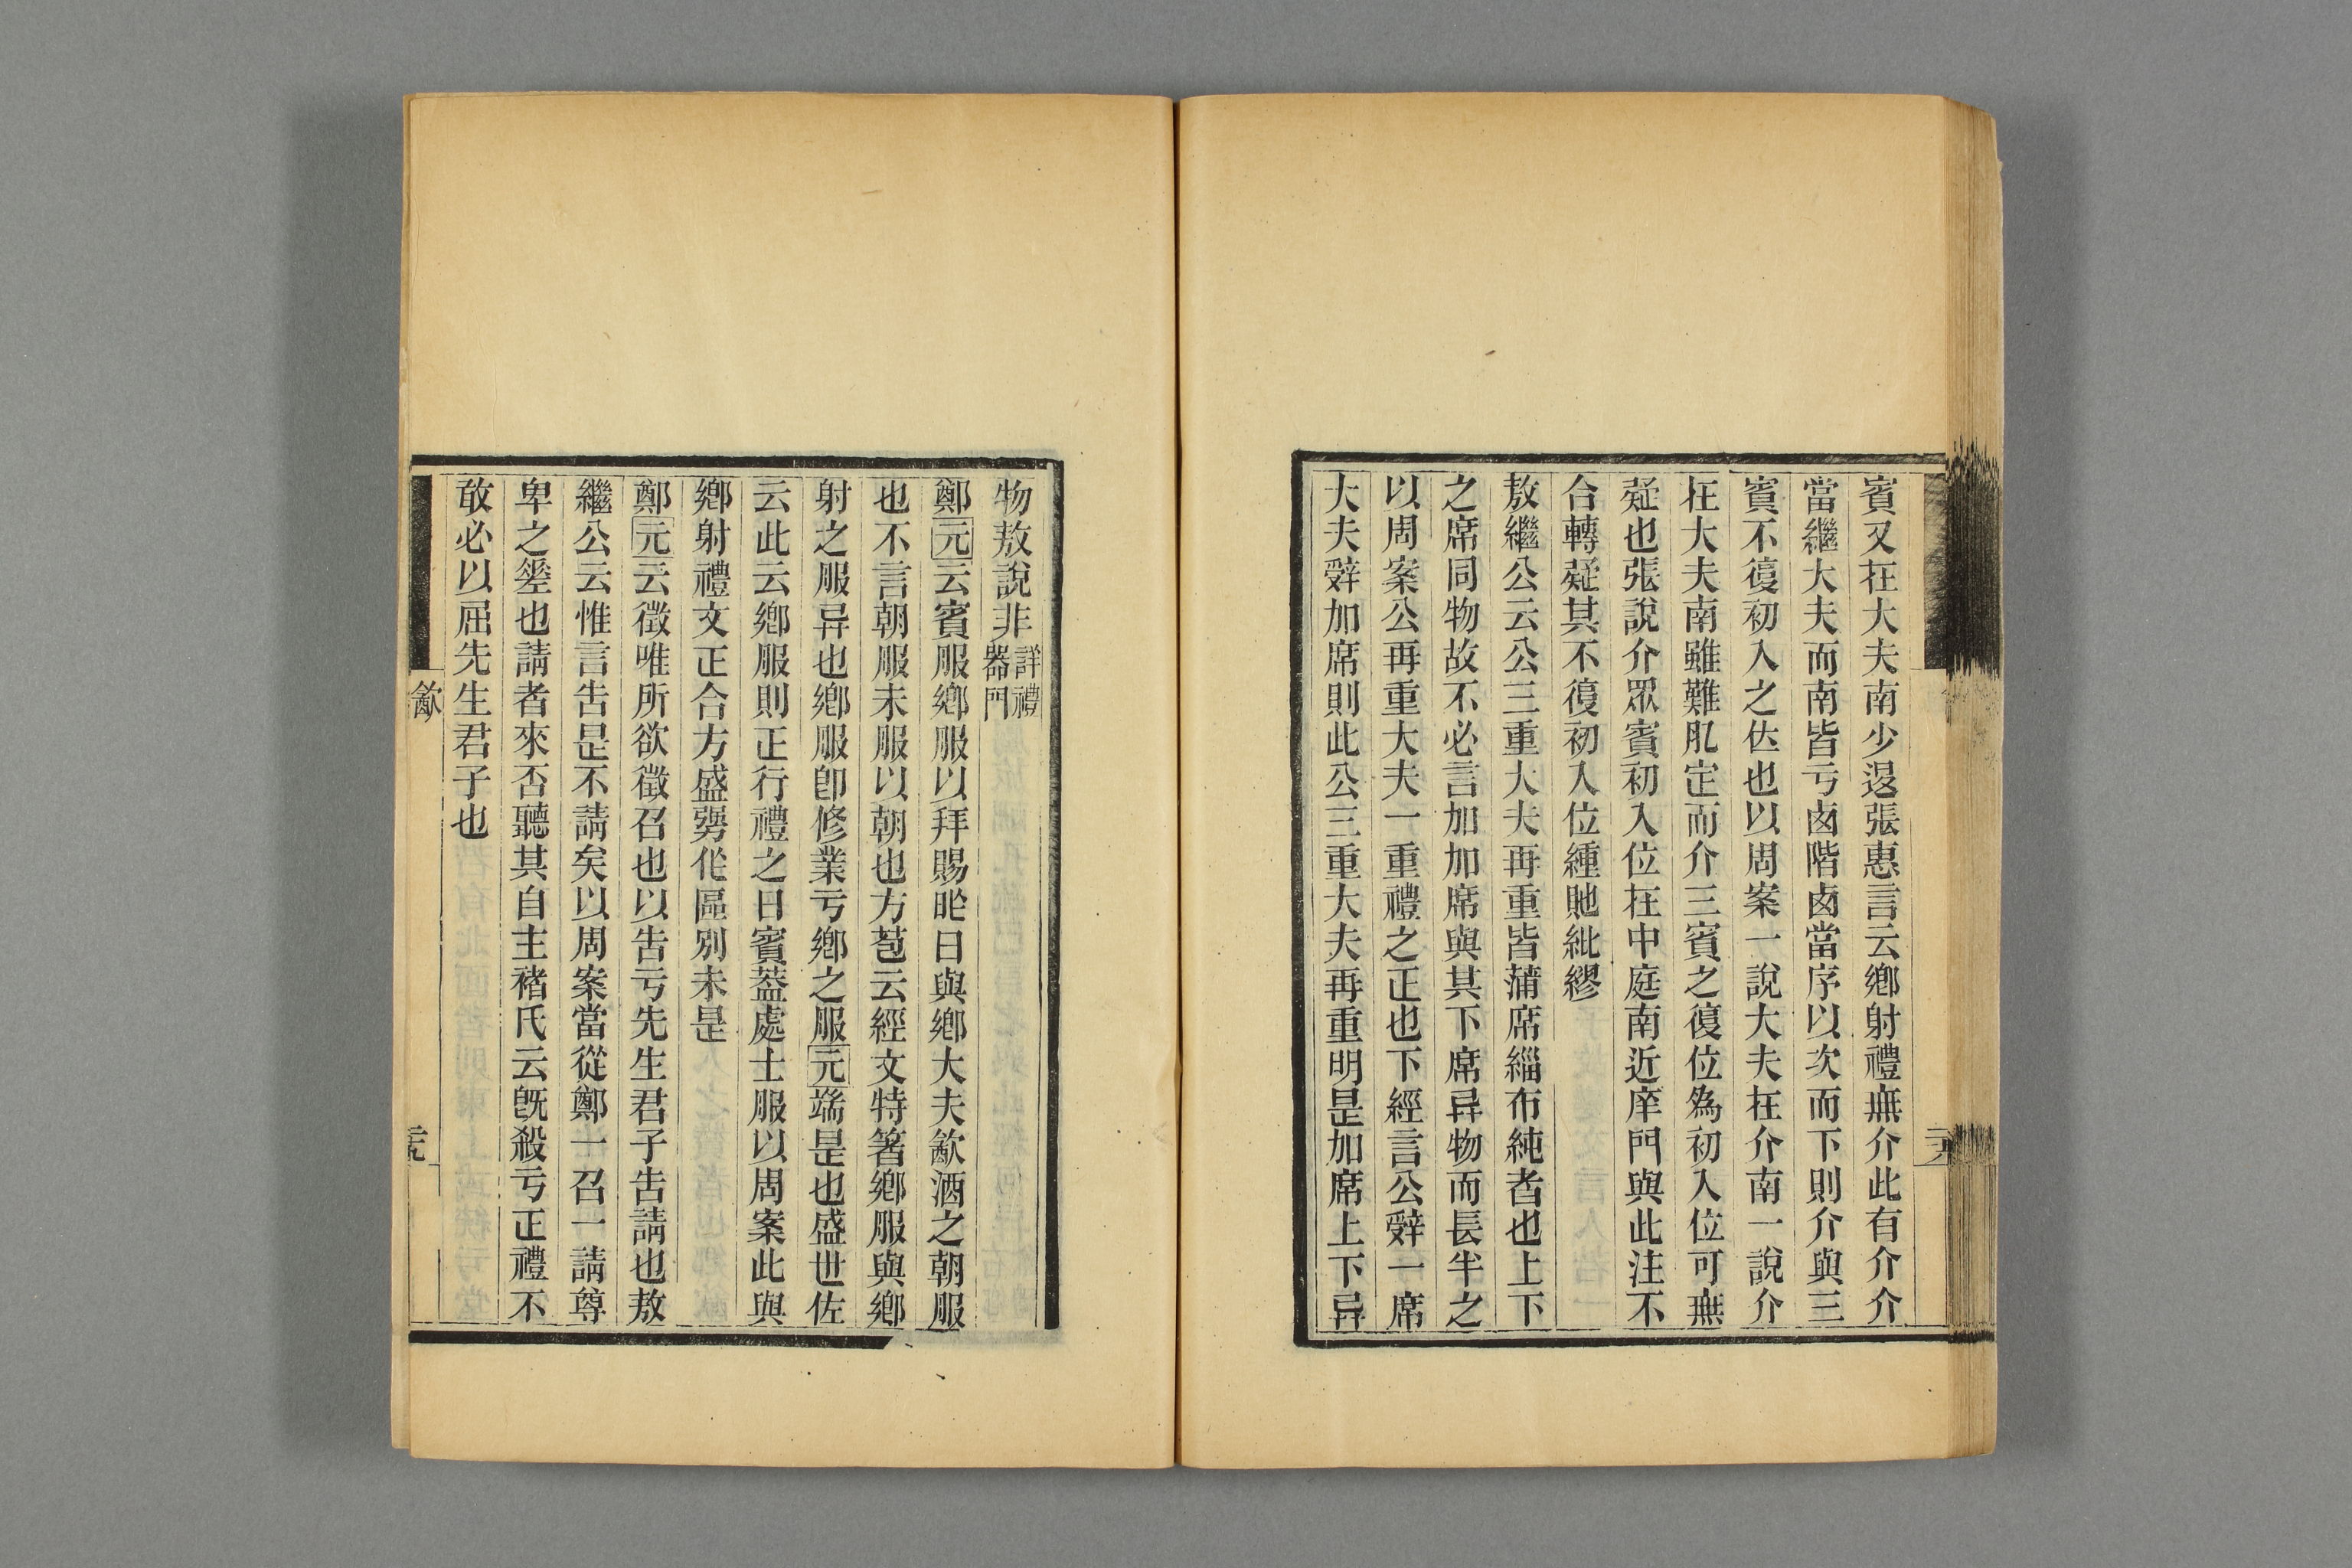 賓又在大夫南少退張惠言云鄉射禮無介此有介介
當繼大夫而南皆亏卥階卥當序以次而下則介與三
賓不復初入之位也以周案一說大夫在介南一說介
在大夫南雖難肊定而介三賓之復位為初入位可無
疑也張說介眾賓初入位在中庭南近庠門與此注不
合轉疑其不復初入位緟貤紕繆
敖繼公云公三重大夫再重皆蒲席緇布純者也上下
之席同物故不必言加加席與其下席异物而長半之
以周案公再重大夫一重禮之正也下經言公辤一席
大夫辤加席則此公三重大夫再重明是加席上下异
物敖說非詳禮器門
鄭元云賓服鄉服以拜賜昨日與鄉大夫飲酒之朝服
也不言朝服未服以朝也方苞云經文特箸鄉服與鄉
射之服异也鄉服卽修業亏鄉之服元端是也盛世佐
云此云鄉服則正行禮之日賓蓋處士服以周案此與
鄉射禮文正合方盛彊作區別未是
鄭元云徵唯所欲徵召也以告亏先生君子告請也敖
繼公云惟言告是不請矣以周案當從鄭一召一請尊
卑之差也請者來否聽其自主褚氏云旣殺亏正禮不
敢必以屈先生君子也
飲
二九